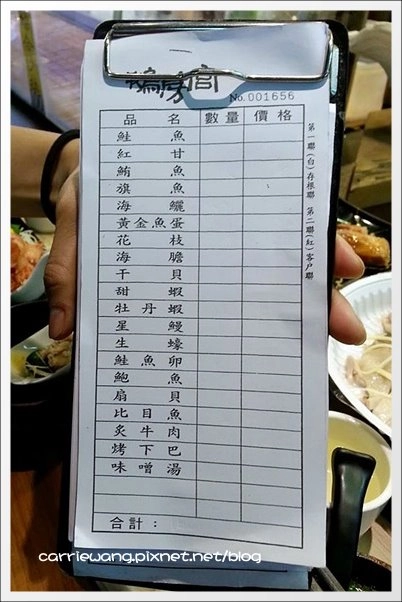 No. 001656
品名 數量 價格
鮭魚
紅甘
鮪魚
旗魚
海鱺
黃金魚蛋
花枝
海膽
干貝
甜蝦
牡丹蝦
星鰻
生蠔
鮭魚卵
鮑魚
扇貝
比目魚
炙牛肉
烤下巴
味噌湯
合計：
第一聯(白)存根聯 第二聯(紅)客戶聯
carriewang.pixnet.net/blog